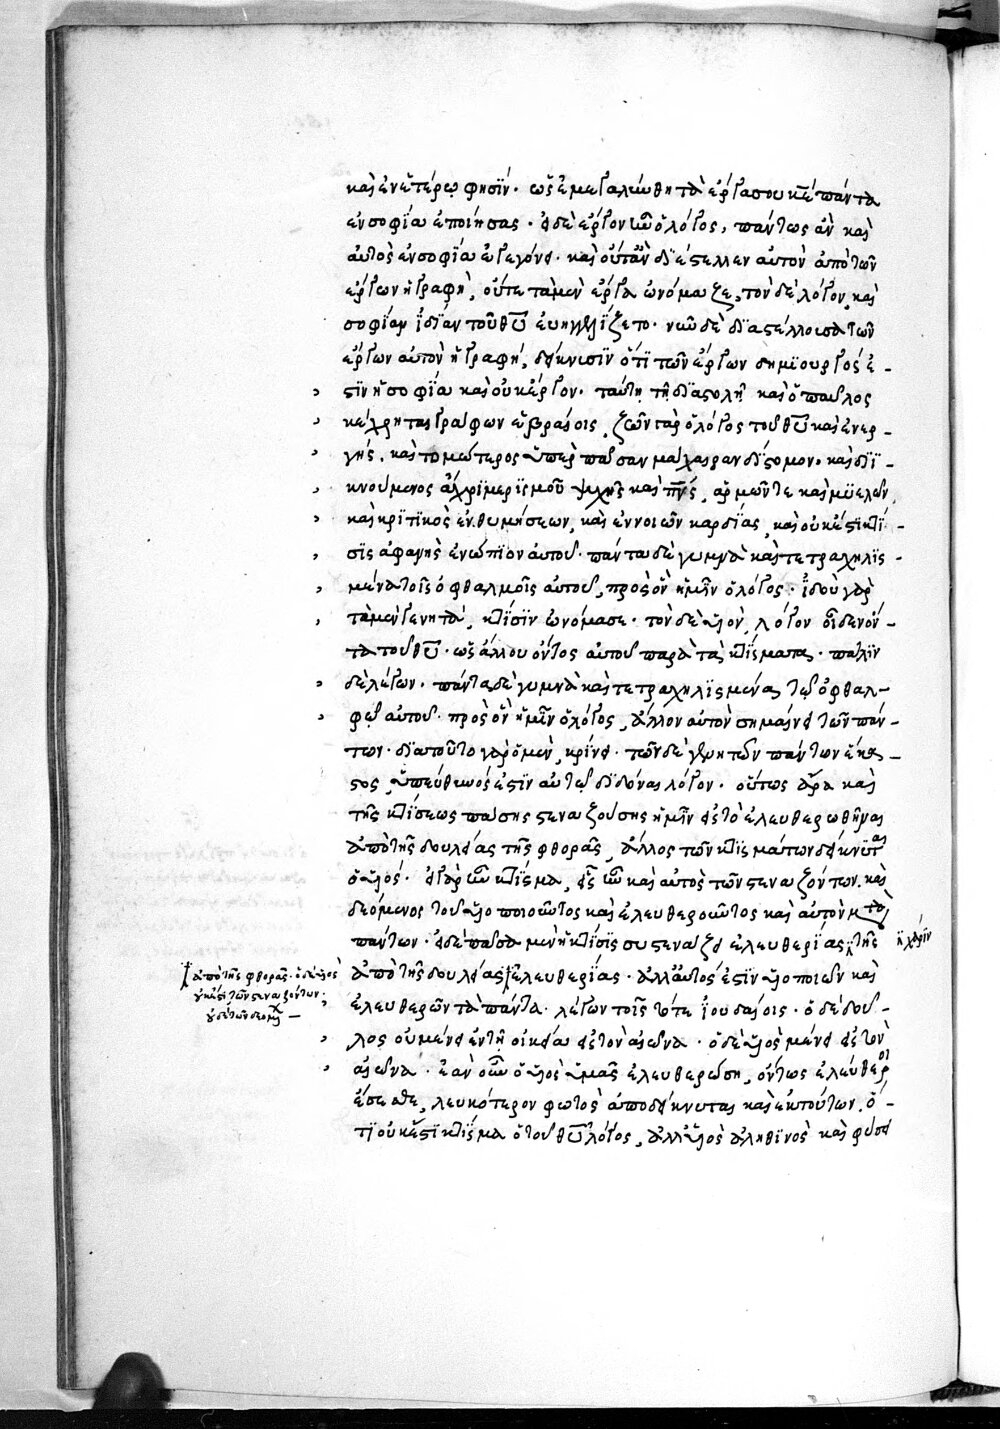 καὶ ἐν ἑτέρῳ φησίν. ὡς ἐμεγαλύνθη τὰ ἔργα σου κε πάντα
ἐν σοφία ἐποίησας. εἰ δὲ ἔργον ἦν ὁ λόγος, πάντως ἂν καὶ
αὐτὸς ἐν σοφία ἐγεγόνει. καὶ οὔτ' ἂν διέστελλεν αὐτὸν ἀπὸ τῶν
ἔργων ἡ γραφὴ, οὔτε τὰ μὲν ἔργα ὠνόμαζε, τὸν δὲ λόγον καὶ
σοφίαν ἰδίαν τοῦ θυ εὐηγγελίζετο. νῦν δὲ διαστέλλουσα τῶν
ἔργων αὐτὸν ἡ γραφή, δείκνυσιν ὅτι τῶν ἔργων δημιουργός ἐ-
στιν ἡ σοφία καὶ οὐκ ἔργον. ταύτη τῆ διαστολῆ καὶ ὁ παῦλος
κέχρηται γράφων ἑβραίοις, ζῶν γὰρ ὁ λόγος τοῦ θυ καὶ ἐνερ-
γής. καὶ τομώτερος ὑπὲρ πᾶσαν μάχαιραν δίστομον. καὶ δϊϊ-
κνούμενος ἄχρι μερισμοῦ ψυχῆς καὶ πνς, ἁρμῶν τε καὶ μυελῶν,
καὶ κριτικὸς ἐνθυμήσεων, καὶ ἐννοιῶν καρδίας, καὶ οὐκ ἔστι κτί-
σις ἀφανὴς ἐνώπιον αὐτοῦ. πάντα δὲ γυμνὰ καὶ τετραχηλισ-
μένα τοῖς ὀφθαλμοῖς αὐτοῦ, πρὸς ὃν ἡμῖν ὁ λόγος. ἰδοὺ γὰρ
τὰ μὲν γενητὰ, κτίσιν ὠνόμασε. τὸν δὲ υἱὸν, λόγον οἶδεν ὄν-
τα τοῦ θυ. ὡς ἄλλου ὄντος αὐτοῦ παρὰ τὰ κτίσματα. πάλιν
δὲ λέγων. πάντα δὲ γυμνὰ καὶ τετραχηλισμένα, τῷ ὀφθαλ-
μῷ αὐτοῦ. πρὸς ὃν ἡμῖν ὁ λόγος, ἄλλον αὐτὸν σημαίνει τῶν πάν-
των. διὰ τοῦτο γὰρ ὁ μὲν, κρίνει. τῶν δὲ γενητῶν πάντων ἕκα-
στος, ὑπεύθυνός ἐστιν αὐτῷ διδόναι λόγον. οὕτως ἄρα καὶ
τῆς κτίσεως πάσης στεναζούσης ἡμῖν εἰς τὸ ἐλευθερωθῆναι
ἀπὸ τῆς δουλείας τῆς φθορᾶς, ἄλλος τῶν κτισμάτων δείκνυται
ὁ υἱός. εἰ γὰρ ἦν κτίσμα, εἷς ἦν καὶ αὐτὸς τῶν στεναζόντων. καὶ
δεόμενος τοῦ υἱοποιοῦντος καὶ ἐλευθεροῦντος καὶ αὐτὸν μετὰ
πάντων. εἰ δὲ πᾶσα μὲν ἡ κτίσις συστενάζει ἐλευθερίας τῆς
ἀπὸ τῆς δουλείας ἐλευθερίας. ἀλλ' αὐτός ἐστιν υἱοποιῶν καὶ
ἐλευθερῶν τὰ πάντα. λέγων τοῖς τότε ἰουδαίοις. ὁ δὲ δοῦ-
λος οὐ μένει ἐν τῆ οἰκεία εἰς τὸν αἰῶνα. ὁ δὲ υἱὸς μένει εἰς τὸν
αἰῶνα. ἐὰν οὖν ὁ υἱὸς ὑμᾶς ἐλευθερώση, ὄντως ἐλεύθεροι
ἔσεσθε, λευκότερον φωτὸς ἀποδείκνυται καὶ ἐκ τούτων. ὅ-
τι οὐκ ἔστι κτίσμα ὁ τοῦ θυ λόγος, ἀλλ' υἱὸς ἀληθινὸς καὶ φύσει
ἀπὸ τῆς φθορᾶς. ὁ δὲ υἱὸς
οὐκ ἔστι τῶν στεναζόντων.
οὐδὲ τῶν δεομ